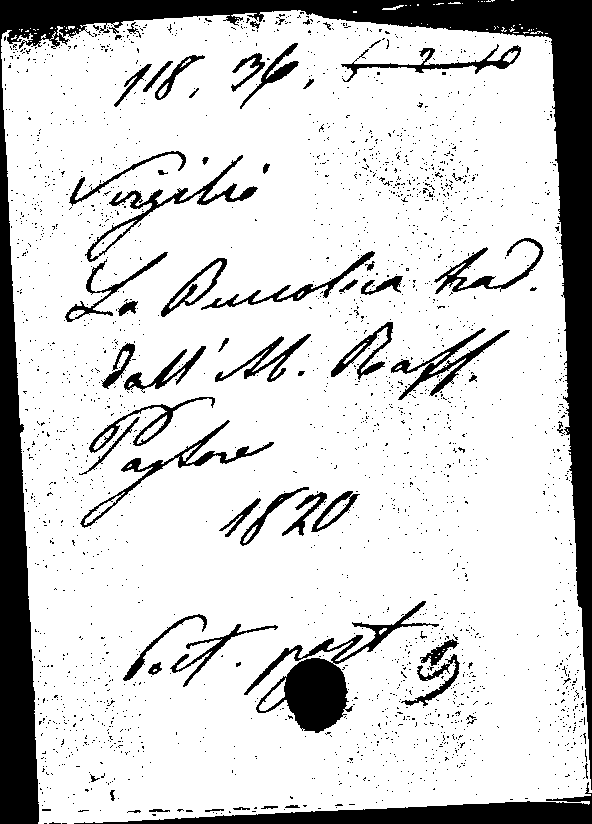 118. 36. 6. 2. 10
Virgilio
La Buccolica trad.
dall' Ab. Raff.
Pastore
1820
Poet. past